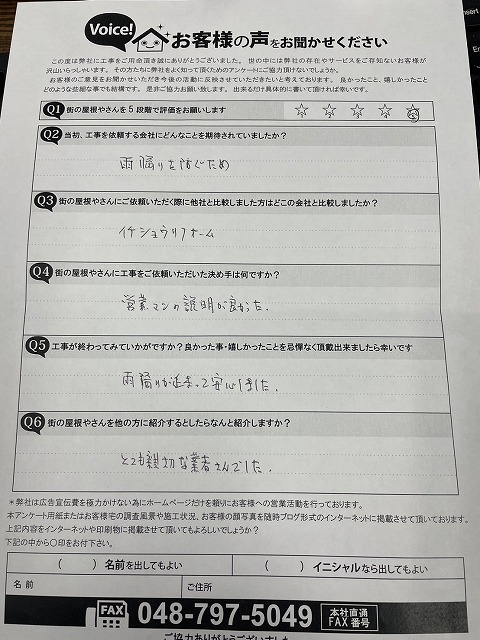 Voice!
お客様の声をお聞かせください
この度は弊社に工事をご用命頂き誠にありがとうございました。世の中には弊社の存在やサービスをご存知ないお客様が
沢山いらっしゃいます。その方たちに弊社をよく知って頂くためのアンケートにご協力頂けないでしょうか。
お客様のご意見をお聞かせいただき今後の活動に反映させていただきたいと考えております。良かったこと、嬉しかったこと
どのような些細な事でも結構です。是非ご協力お願い致します。出来るだけ具体的に書いて頂ければ幸いです。
Q1 街の屋根やさんを5段階で評価をお願いします
1 2 3 4 5
Q2 当初、工事を依頼する会社にどんなことを期待されていましたか?
雨漏りを防ぐため
Q3 街の屋根やさんにご依頼いただく際に他社と比較しました方はどこの会社と比較しましたか?
イチショウリフォーム
Q4 街の屋根やさんに工事をご依頼いただいた決め手は何ですか?
営業マンの説明が良かった.
Q5 工事が終わってみていかがですか?良かった事・嬉しかったことを忌憚なく頂戴出来ましたら幸いです
雨漏りが止まって安心しました.
Q6 街の屋根やさんを他の方に紹介するとしたらなんと紹介しますか?
とても親切な業者さんでした.
*弊社は広告宣伝費を極力かけない為にホームページだけを頼りにお客様への営業活動を行っております。
本アンケート用紙またはお客様宅の調査風景や施工状況、お客様の顔写真を随時ブログ形式のインターネットに掲載させて頂いております。
上記内容をインターネットや印刷物に掲載させて頂いてもよろしいでしょうか?
下記の中から〇印をお付下さい。
( ) 名前を出してもよい ( ) イニシャルなら出してもよい
名前 ご住所
FAX 048-797-5049 本社直通 FAX番号
ご協力ありがとうございました